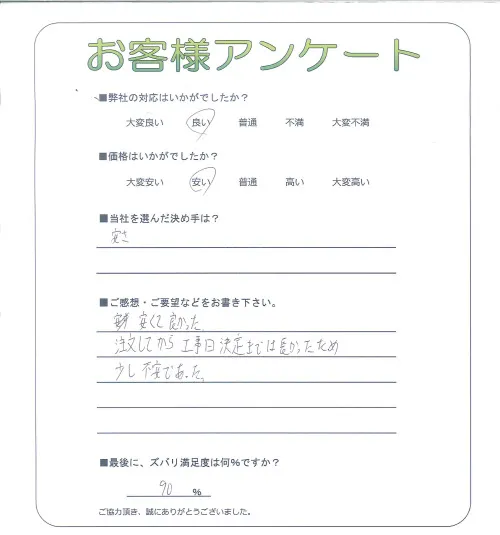 お客様アンケート
■弊社の対応はいかがでしたか？
大変良い 良い 普通 不満 大変不満
■価格はいかがでしたか？
大変安い 安い 普通 高い 大変高い
■当社を選んだ決め手は？
安さ
■ご感想・ご要望などをお書き下さい。
安くて良かった。
注文してから工事日決定までは長かったため
少し不安であった。
■最後に、ズバリ満足度は何％ですか？
90 %
ご協力頂き、誠にありがとうございました。